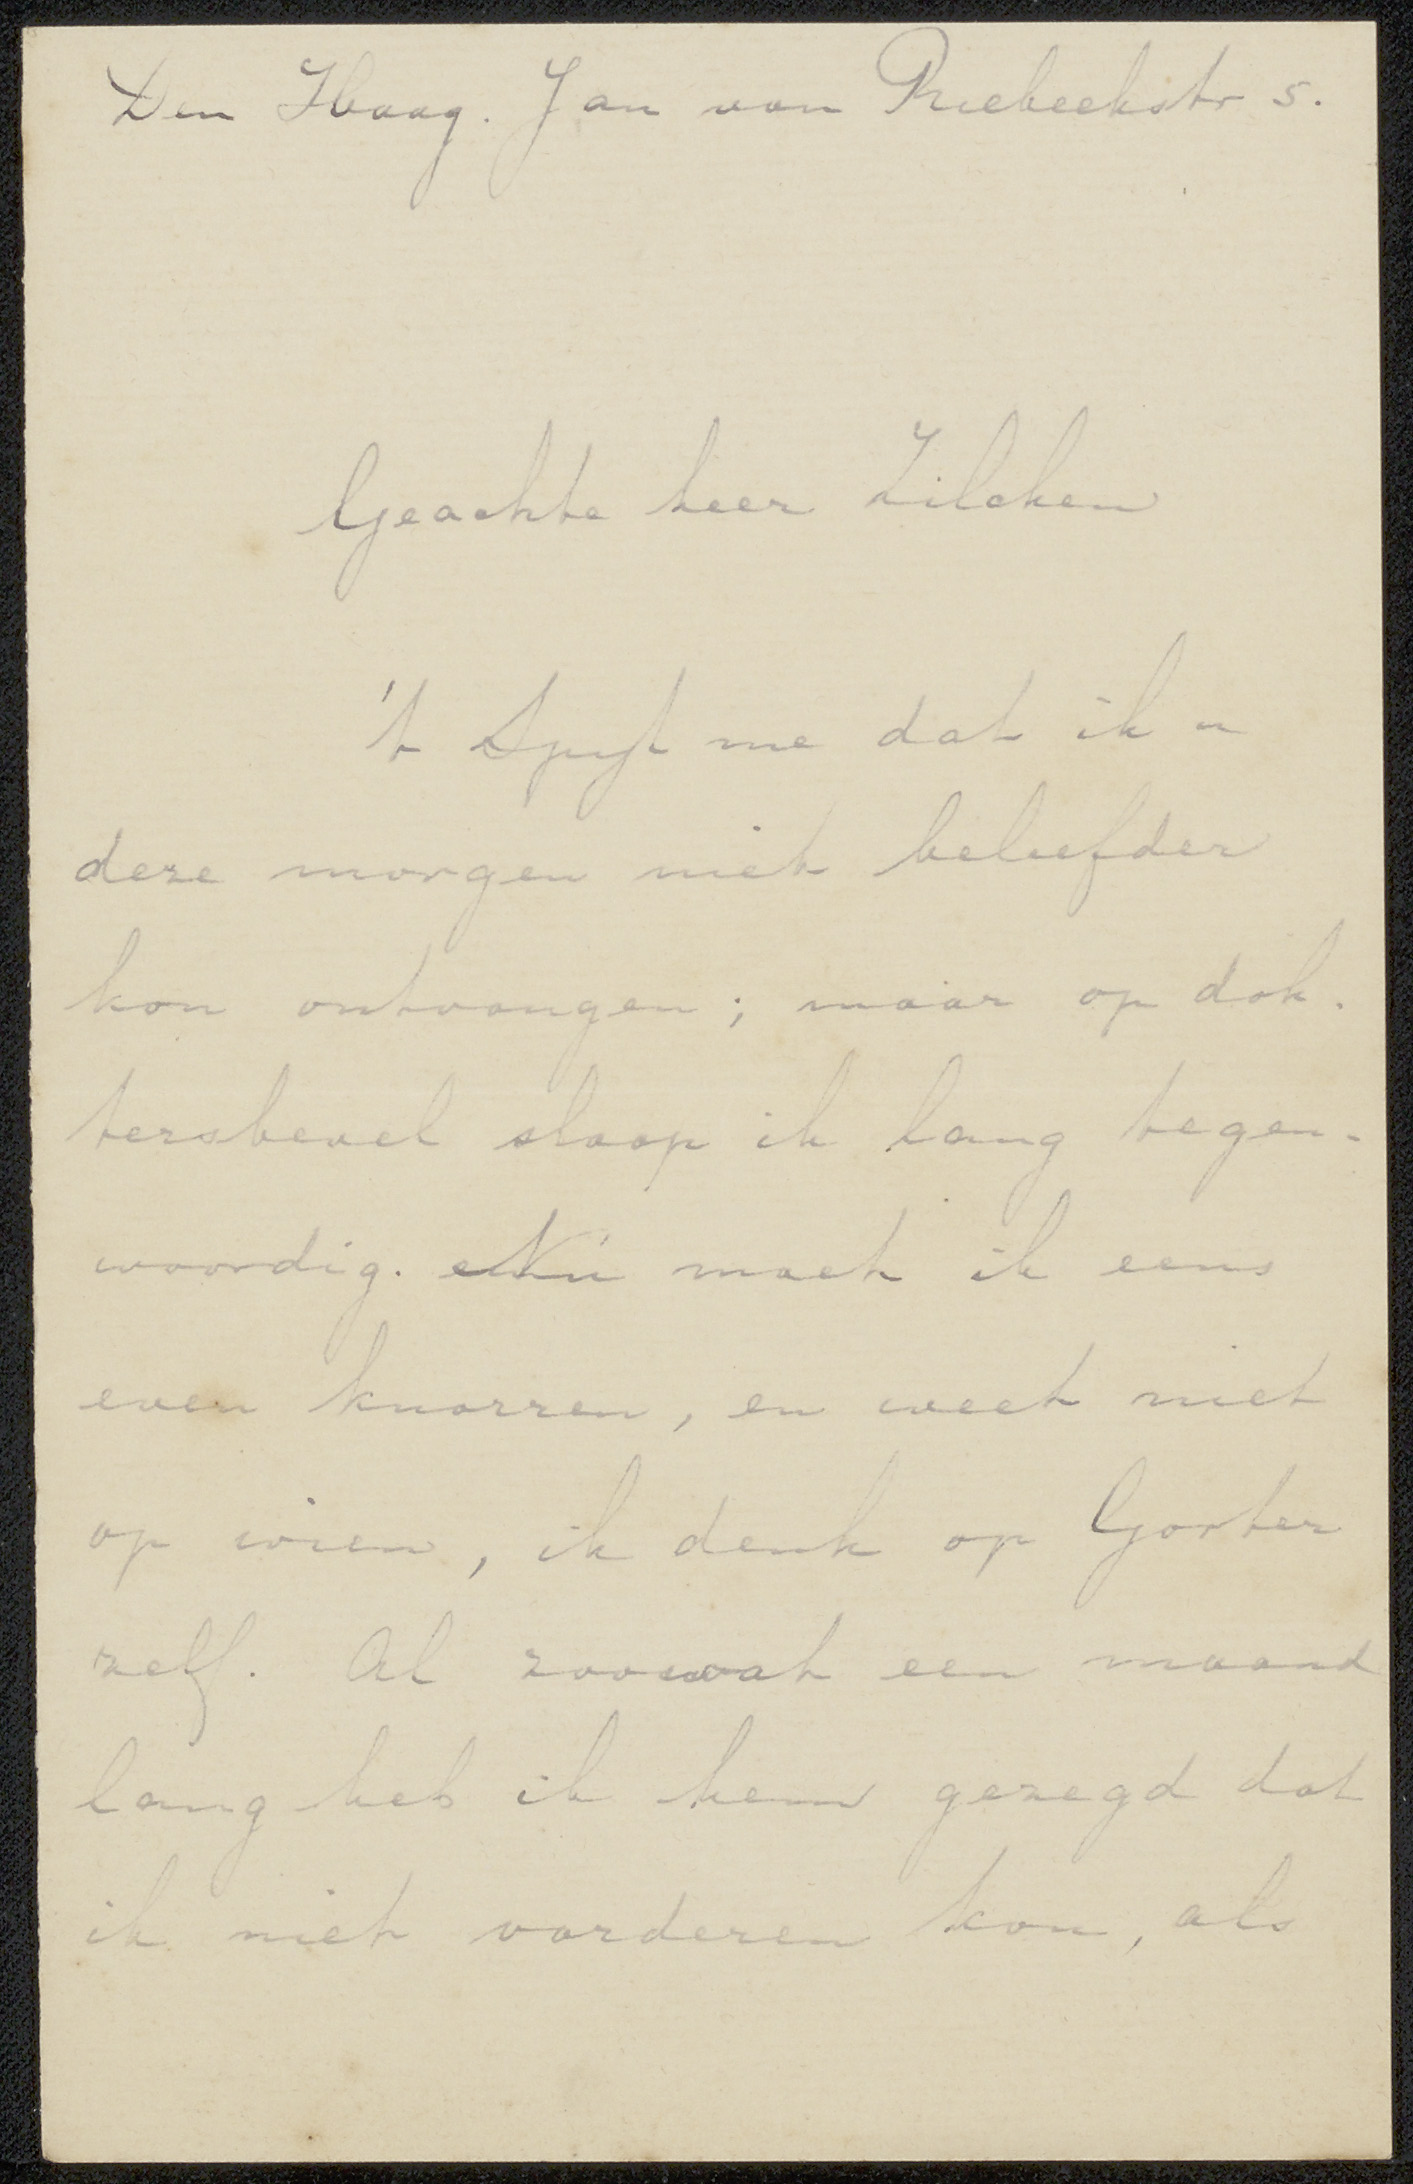 Den Haag. Jan van Riebeekstr 5.
Geachte heer Zilcken
't Spijt me dat ik u
deze morgen niet beleefder
kon ontvangen; maar op dok-
tersbevel slaap ik lang tegen-
woordig. Nú moet ik eens
even knorren, en weet niet
op wien, ik denk op Gorter
zelf. Al zoowat een maand
lang heb ik hem gezegd dat
ik niet vorderen kon, als